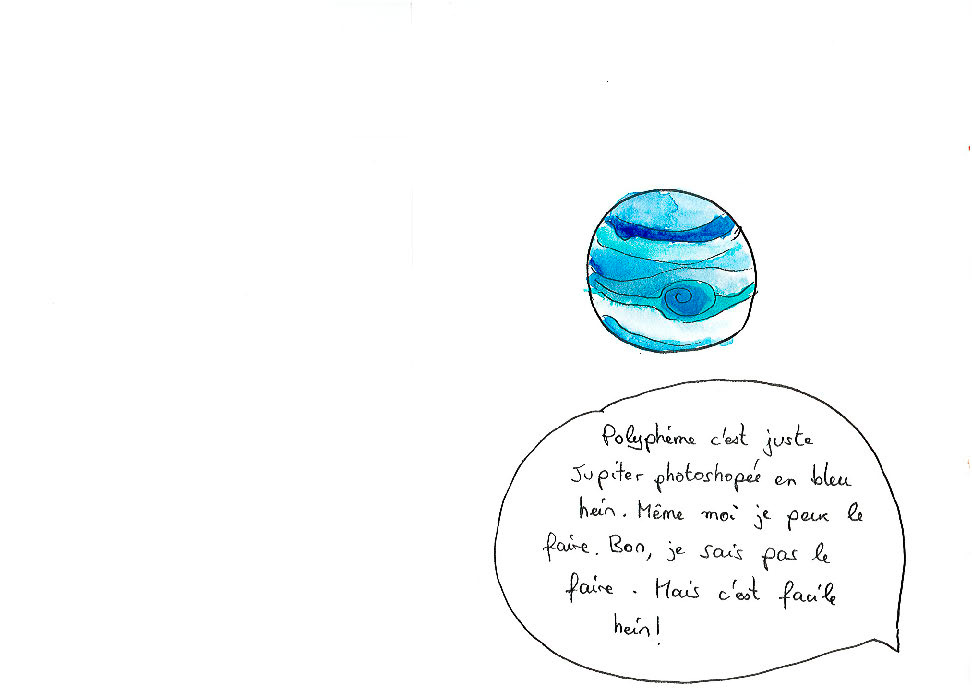 Polyphème c'est juste
Jupiter photoshopée en bleu
hein. Même moi je peux le
faire. Bon, je sais pas le
faire. Mais c'est facile
hein!